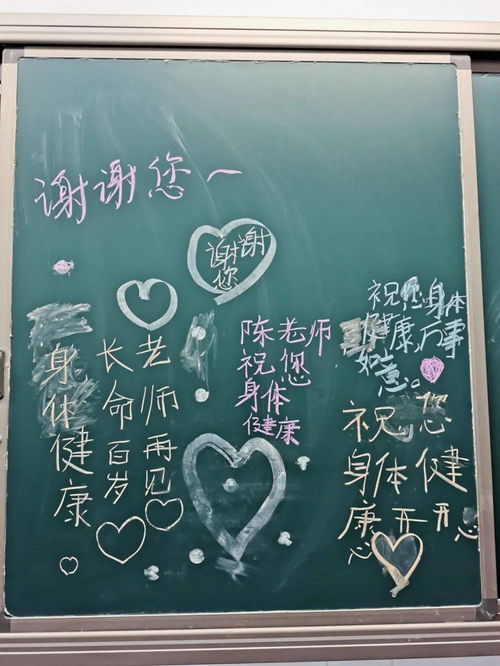 谢谢您~
谢谢
您
陈老师
祝您
身体
健康
祝您身体
健康,万事
如意。
老师再见
长命百岁
身体健康
祝您
身体健
康开开
心心